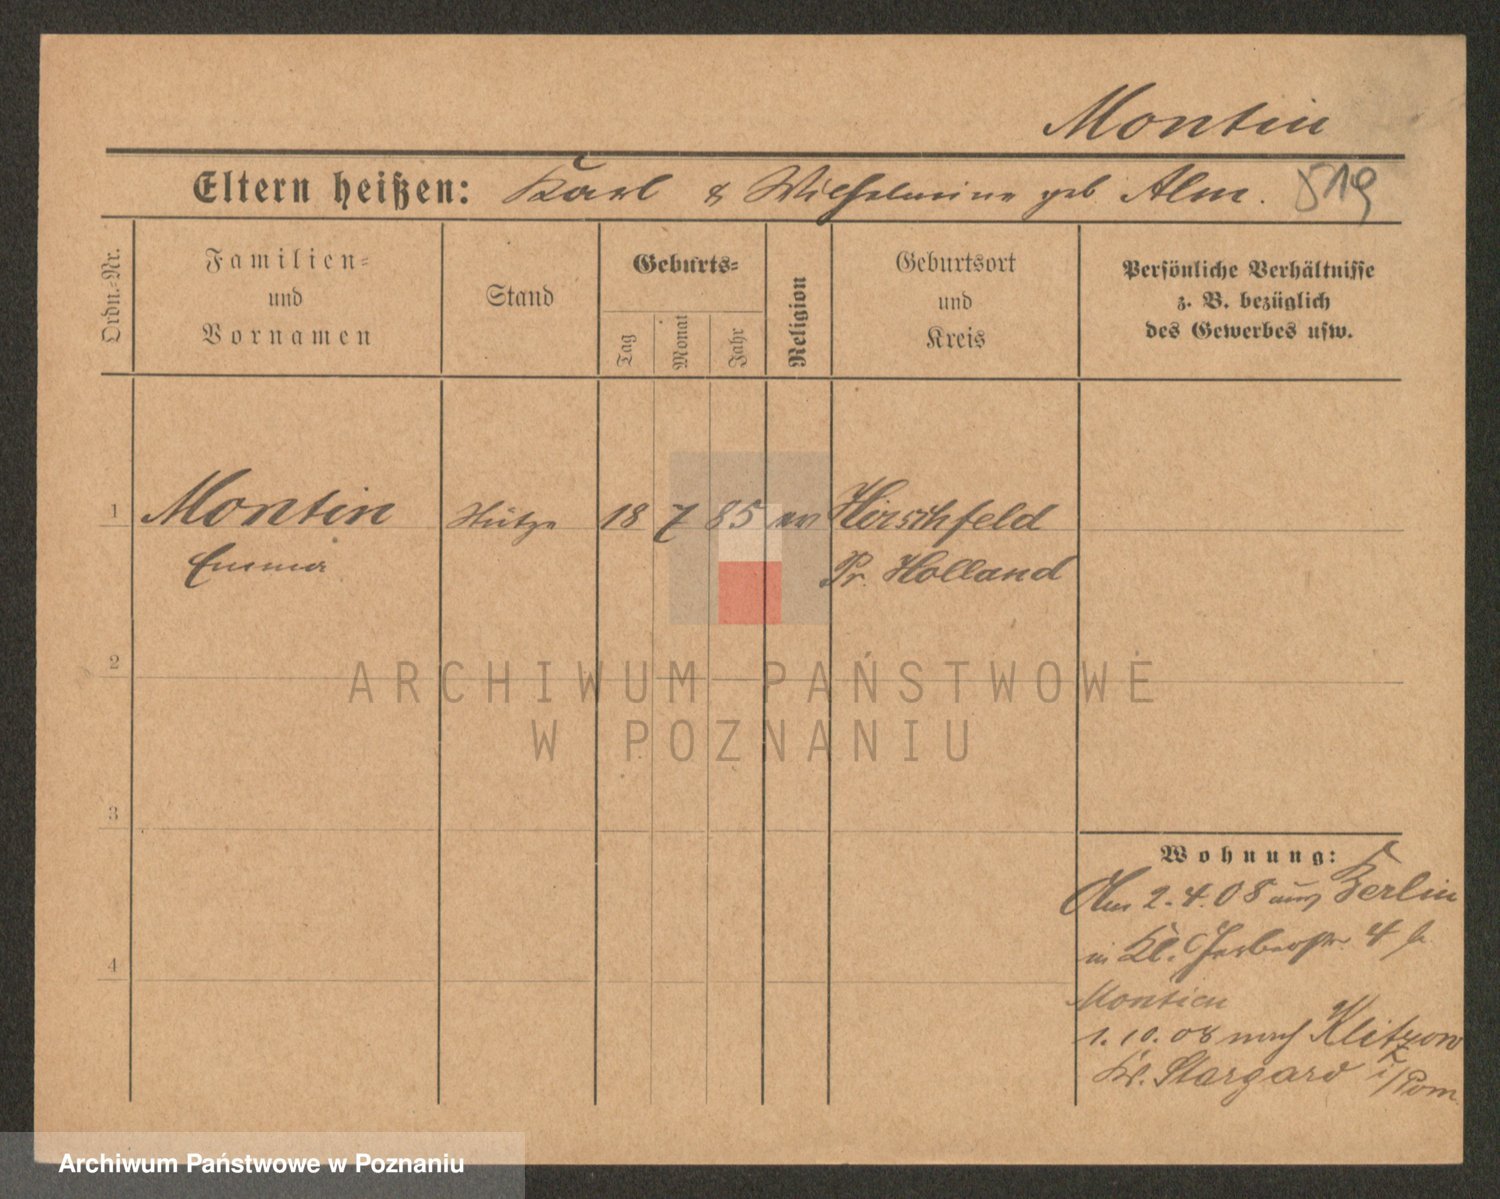 Montin
Eltern heißen: Karl & Wilhelmine geb Alm. 519
Ordn.-Nr.
Familien-
und
Vornamen
Stand
Geburts-
Tag
Monat
Jahr
Religion
Geburtsort
und
Kreis
Persönliche Verhältnisse
z. B. bezüglich
des Gewerbes usw.
1 Montin Stütze 18 7 85 ev Hirschfeld
Emma Pr. Holland
2
ARCHIWUM PAŃSTWOWE
W POZNANIU
3
Wohnung:
Am 2.4.08 aus Berlin
in Kl. Gerberstr. 4 b
4
Montien
1.10.08 nach Klitzow
Kr. Stargard i/Pom.
Archiwum Państwowe w Poznaniu